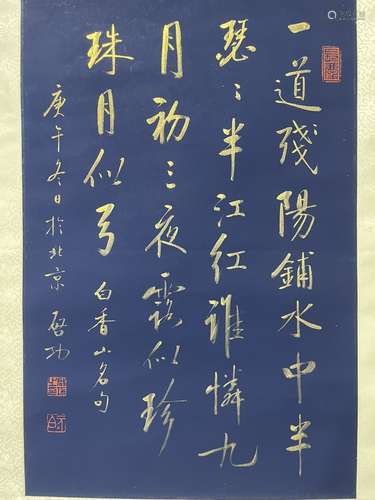 一道殘陽鋪水中半
瑟〻半江紅誰憐九
月初三夜露似珍
珠月似弓 白香山名句
庚午冬日於北京 啓功